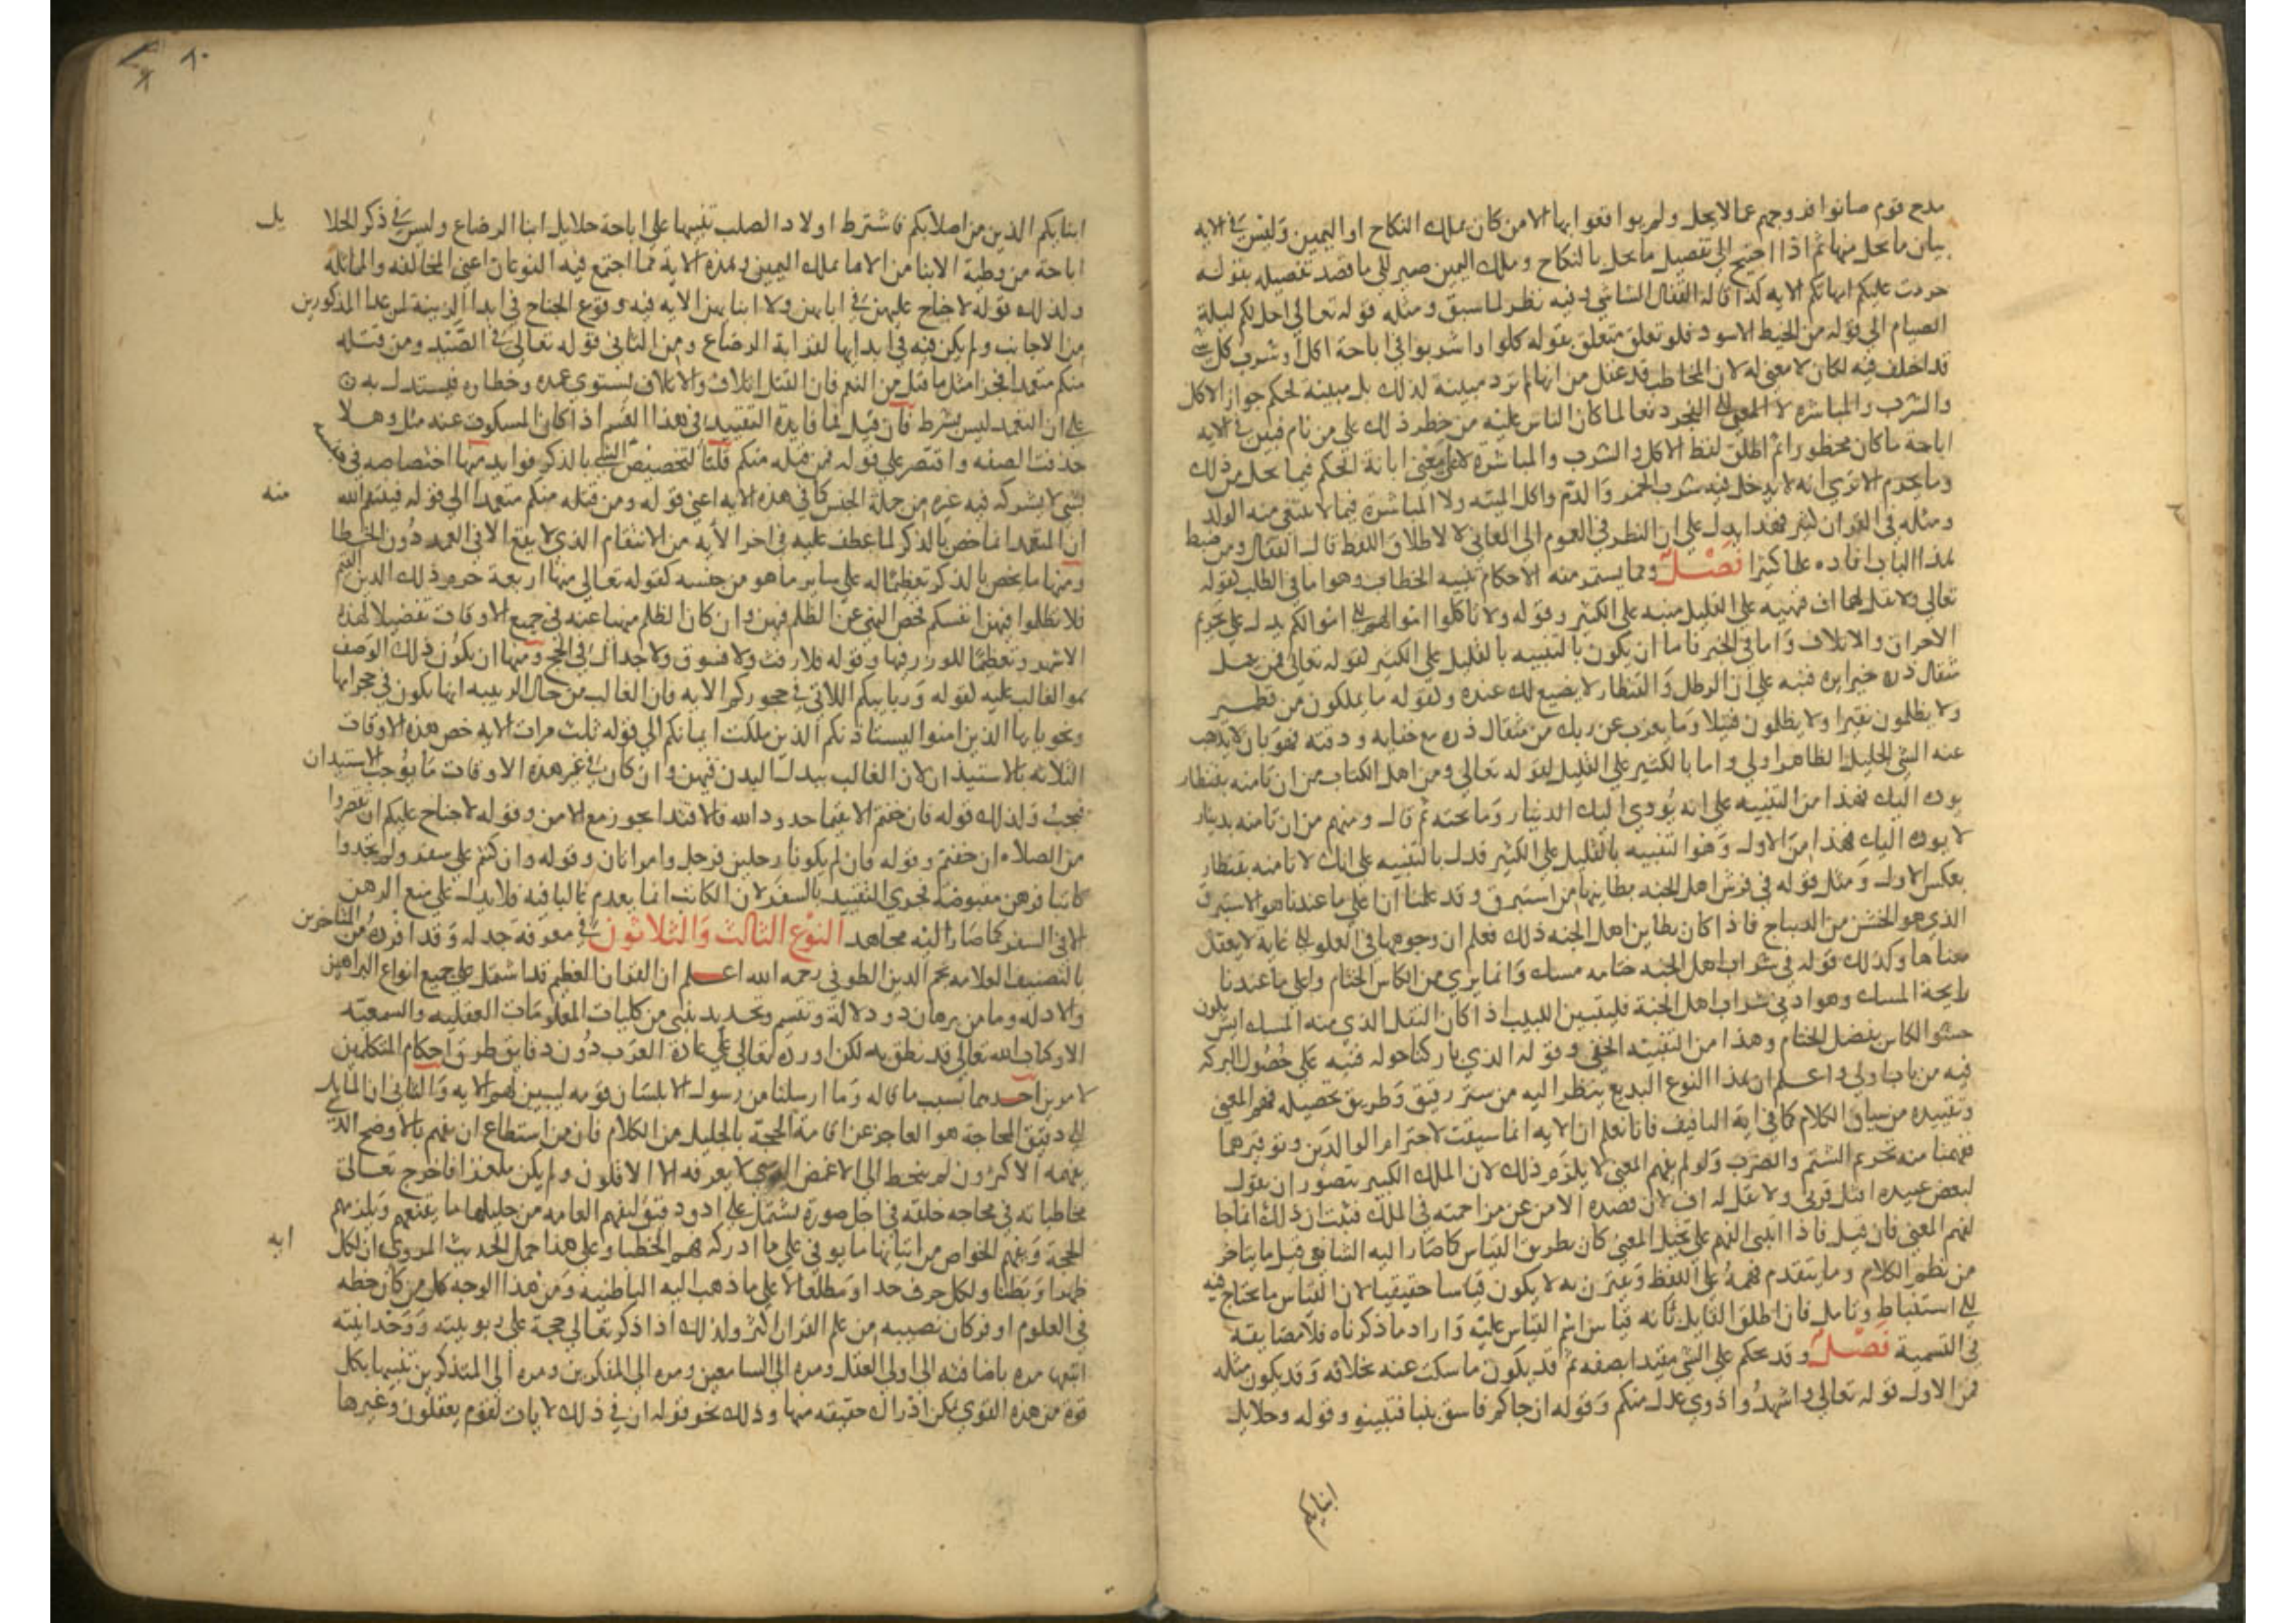 مدح قوم صانوا فروجهم عما لا يحل ولم يواقعوا بها الا من كان بملك النكاح او اليمين وليس في الايه
بيان ما يحل منها ثم اذا احتيج الى تفصيل ما يحل بالنكاح وملك اليمين صير الى ما قصد تفصيله بقوله
حرمت عليكم امهاتكم الايه كذا قاله القفال الشاشي وفيه نظر لما سبق ومثله قوله تعالى احل لكم ليلة
الصيام الى قوله من الخيط الاسود فلو تعلق متعلق بقوله كلوا واشربوا في اباحة اكل وشرب كل شي
قد اختلف فيه لكان لا معنى له لان المخاطب قد غفل من انها لم ترد مبينة لذلك بل مبينة لحكم جواز الاكل
والشرب والمباشرة الى الفجر دفعا لما كان الناس عليه من حظر ذلك على من نام فبين في الايه
اباحة ما كان محظورا ثم اطلق لفظ الاكل والشرب والمباشرة لا على معنى ابانة الحكم فيما يحل من ذلك
وما يحرم الا ترى انه لا يدخل فيه شرب الخمر والدم واكل الميتة ولا المباشرة فيما لا يبتغى منه الولد
ومثله في القران كثير فهذا يدل على ان النظر في العموم الى المعاني لا لاطلاق اللفظ قال القفال ومن ضبط
هذا الباب افاده علما كثيرا فصل ومما يستثمر منه الاحكام تنبيه الخطاب وهو اما في الطلب لقوله
تعالى ولا تقل لهما اف فنهيه على القليل منبه على الكثير وقوله ولا تاكلوا اموالهم الى اموالكم يدل على تحريم
الاحراق والاتلاف واما في الخبر فاما ان يكون بالتنبيه بالقليل على الكثير لقوله تعالى فمن يعمل
مثقال ذرة خيرا يره فنبه على ان الرطل والقنطار لا يضيع لك عنده ولقوله ما يملكون من قطمير
ولا يظلمون نقيرا ولا يظلمون فتيلا وما يعزب عن ربك من مثقال ذرة مع خفايه ودقته فهو بان لا يذهب
عنه الشي الجليل الظاهر اولى واما بالكثير على القليل لقوله تعالى ومن اهل الكتاب من ان تامنه بقنطار
يوده اليك فهذا من التنبيه على انه يودي اليك الدينار وما تحته ثم قال ومنهم من ان تامنه بدينار
لا يوده اليك فهذا من الاول وهو التنبيه بالقليل على الكثير فدل بالتنبيه على انك لا تامنه بقنطار
بعكس الاول ومثل قوله في فرش اهل الجنه بطاينها من استبرق وقد علمنا ان اعلى ما عندنا هو الاستبرق
الذي هو الخشن من الديباج فاذا كان بطاين اهل الجنه ذلك فعلم ان وجوهها في العلو الى غاية لا يعقل
معناها وكذلك قوله في شراب اهل الجنه ختامه مسك وانما يرى من الكاس الختام واعلى ما عندنا
رايحة المسك وهو ادنى شراب اهل الجنة فليتبين اللبيب اذا كان الثفل الذي منه المسك ايش يكون
حشو الكاس بفضل الختام وهذا من التنبيه الخفي وقوله الذي باركنا حوله فنبه على حصول البركة
فيه من باب اولى واعلم ان هذا النوع البديع ينظر اليه من ستر رقيق وطريق تحصيله فهم المعنى
وتقييده من سياق الكلام كما في اية التافيف فانا نعلم ان الايه انما سيقت لاحترام الوالدين وتوقيرهما
ففهمنا منه تحريم الشتم والضرب ولو لم يفهم المعنى لا يلزم ذلك لان الملك الكبير يتصور ان يقول
لبعض عبيده اقتل قرني ولا تقل له اف لان قصده الامن عن مزاحمته في الملك فثبت ان ذلك انما جا
لفهم المعنى فان قيل فاذا ابتنى الفهم على تخيل المعنى كان بطريق القياس كما صار اليه الشافعي قيل ما يتاخر
من نظم الكلام وما يتقدم فهمه على اللفظ ويقترن به لا يكون قياسا حقيقيا لان القياس ما يحتاج فيه
الى استنباط وتامل فان اطلق القايل بانه قياس اسم القياس عليه واراد ما ذكرناه فلا مضايقة
في التسمية فصل وقد يحكم على الشي مقيدا بصفه ثم قد يكون ما سكت عنه بخلافه وقد يكون مثله
فمن الاول قوله تعالى واشهدوا ذوي عدل منكم وقوله ان جاكم فاسق بنبا فتبينوا وقوله وحلايل
ابنايكم
٨٠
ابنايكم الذين من اصلابكم فاشترط اولاد الصلب تنبيها على اباحة حلايل ابنا الرضاع وليس في ذكر الحلا يل
اباحة من وطية الابنا من الاما بملك اليمين وهذه الاية مما اجتمع فيه النوعان اعني المخالفه والمماثلة
ولذلك قوله لا جناح عليهن في ابايهن ولا ابنايهن الايه فيه وقوع الجناح في ابدا الزينة لمن عدا المذكورين
من الاجانب ولم يكن فيه في ابدايها لقرابة الرضاع ومن الثاني قوله تعالى في الصيد ومن قتله
منكم متعمدا فجزا مثل ما قتل من النعم فان القتل اتلاف والاتلاف يستوي عمده وخطاوه فيستدل به
على ان التعمد ليس بشرط فان قيل فما فايدة التقييد في هذا القسم اذا كان المسكوت عنه مثله وهلا
حذفت الصفه واقتصر على قوله فمن قتله منكم قلنا لتخصيص الشي بالذكر فوايد منها اختصاصه في نفسه
بشي لا يشركه فيه غيره من جملة الجنس كما في هذه الايه اعني قوله ومن قتله منكم متعمدا الى قوله فينتقم الله منه
ان المتعمد انما خص بالذكر لما عطف عليه في اخر الايه من الانتقام الذي لا يقع الا في العمد دون الخطا
ومنها ما يخص بالذكر تعظيما له على ساير ما هو من جنسه كقوله تعالى منها اربعة حرم ذلك الدين القيم
فلا تظلموا فيهن انفسكم فخص النهي عن الظلم فيهن وان كان الظلم منهيا عنه في جميع الاوقات تفضيلا لهذه
الاشهر وتعظيما للوزر فيها وقوله فلا رفث ولا فسوق ولا جدال في الحج ومنها ان يكون ذلك الوصف
هو الغالب عليه لقوله وربايبكم اللاتي في حجوركم الايه فان الغالب من حال الربيبه انها تكون في حجر امها
ونحو يايها الذين امنوا ليستاذنكم الذين ملكت ايمانكم الى قوله ثلث مرات الايه خص هذه الاوقات
الثلاثه بالاستيذان لان الغالب تبدل البدن فيهن وان كان في غير هذه الاوقات ما يوجب الاستيذان
فيجب ولذلك قوله فان خفتم الا يقيما حدود الله فالافتدا يجوز مع الامن وقوله لا جناح عليكم ان تقصروا
من الصلاه ان خفتم وقوله فان لم يكونا رجلين فرجل وامراتان وقوله وان كنتم على سفر ولم تجدوا
كاتبا فرهن مقبوضة فجرى التقييد بالسفر لان الكاتب انما يعدم غالبا فيه فلا يدل على منع الرهن
الا في السفر كما صار اليه مجاهد النوع الثالث والثلاثون في معرفة جدله وقد افرده من المتاخرين
بالتصنيف العلامه نجم الدين الطوفي رحمه الله اعلم ان القران العظيم قد اشتمل على جميع انواع البراهين
والادله وما من برهان ودلالة وتقسيم وتحديد بشي من كليات المعلومات العقليه والسمعيه
الا وكتاب الله تعالى قد نطق به لكن اورده تعالى على عادة العرب دون دقايق طرق احكام المتكلمين
لامرين احدهما بسبب ما قاله وما ارسلنا من رسول الا بلسان قومه ليبين لهم الايه والثاني ان المايل
الى دقيق المحاجة هو العاجز عن اقامة الحجة بالجليل من الكلام فان من استطاع ان يفهم بالاوضح الذي
يفهمه الاكثرون لم ينحط الى الاغمض الذي لا يعرفه الا الاقلون ولم يكن ملغزا فاخرج تعالى
مخاطباته في محاجه خلقه في اجل صورة يشتمل على ادق دقيق ليفهم العامه من جليلها ما يقنعهم ويلزمهم
الحجة وتفهم الخواص من اثنايها ما يوفي على ما ادركه فهم الخطبا وعلى هذا حمل الحديث المروي ان لكل ايه
ظهرا وبطنا ولكل حرف حدا ومطلعا لا على ما ذهب اليه الباطنيه ومن هذا الوجه كل من كان حظه
في العلوم اوفر كان نصيبه من علم القران اكثر ولذلك اذا ذكر تعالى حجة على ربوبيته ووحدانيته
اتبعها مره باضافته الى اولي العقل ومره الى السامعين ومره الى المفكرين ومره الى المتذكرين تنبيها بكل
قوة من هذه القوى يمكن ادراك حقيقته منها وذلك نحو قوله ان في ذلك لايات لقوم يعقلون وغيرها